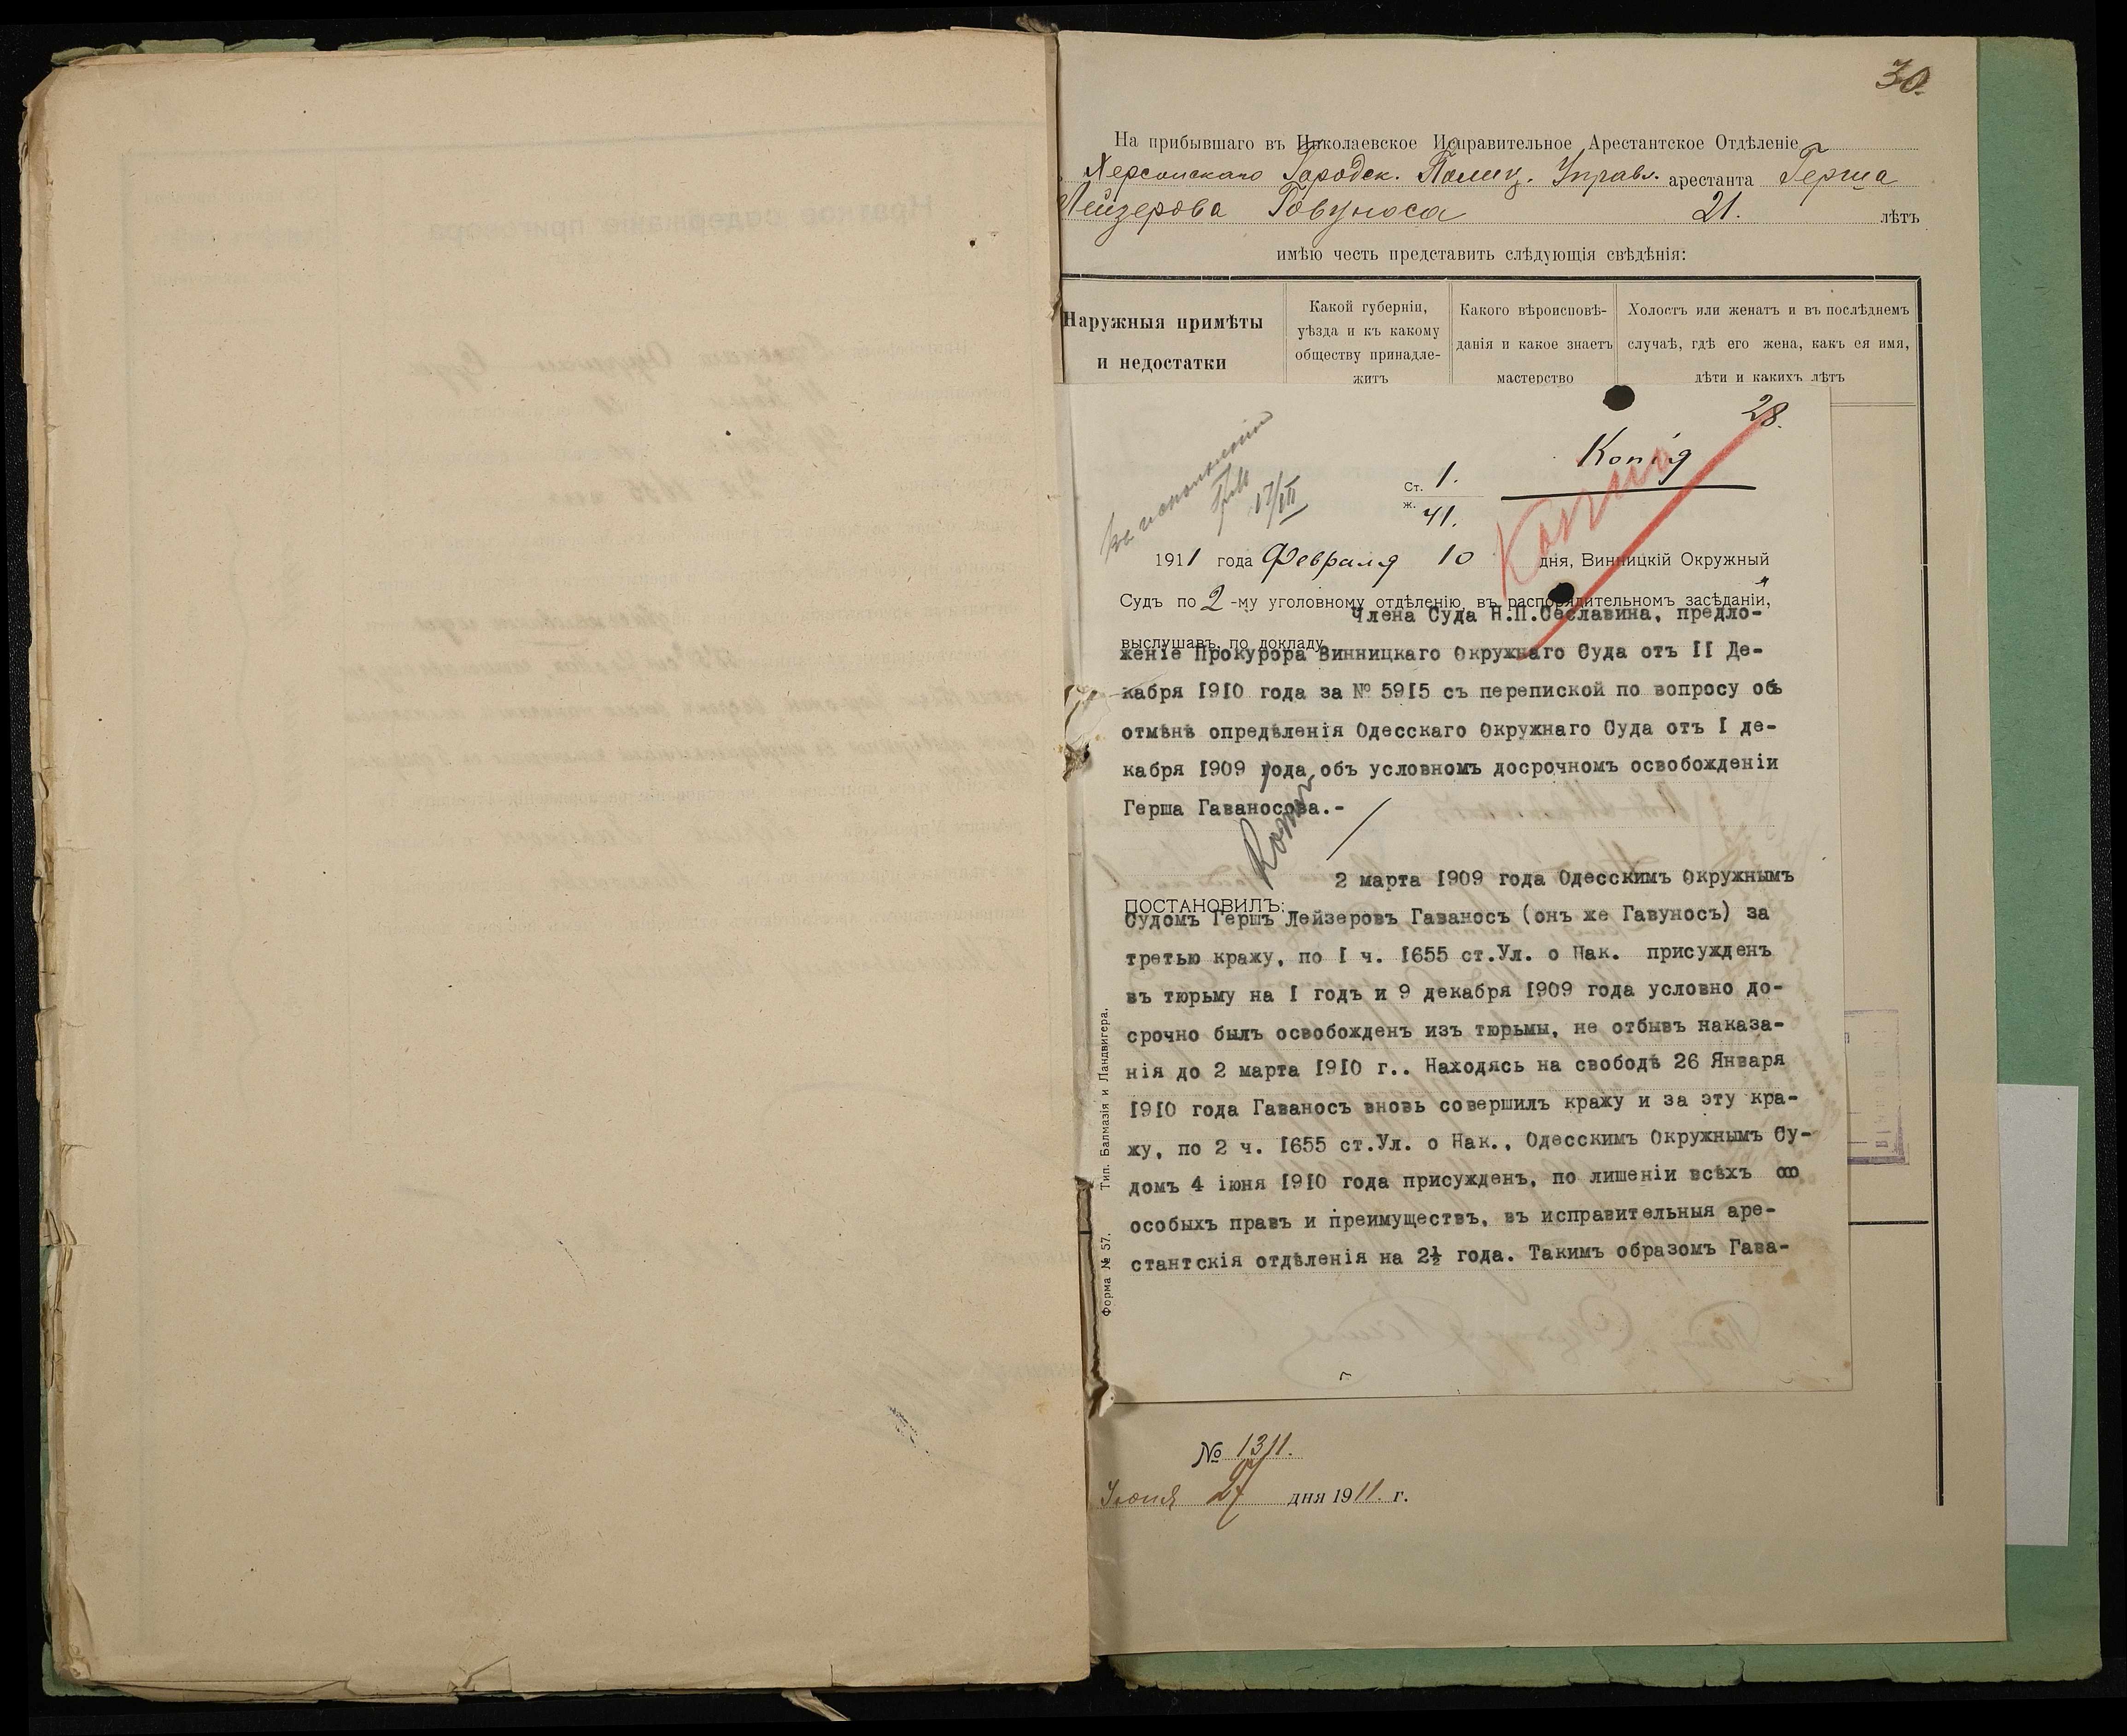 30.
На прибывшаго въ Николаевское Исправительное Арестантское Отдѣленіе
Херсонскаго Городск. Полиц. Управл. арестанта Герша
Лейзерова Говуноса 21. лѣтъ
имѣю честь представить слѣдующія свѣдѣнія:
Наружныя примѣты
и недостатки
Какой губерніи,
уѣзда и къ какому
обществу принадле-
житъ
Какого вѣроисповѣ-
данія и какое знаетъ
мастерство
Холостъ или женатъ и въ послѣднемъ
случаѣ, гдѣ его жена, какъ ея имя,
дѣти и какихъ лѣтъ
28.
Копія
Къ исполненію
17/III
Ст. 1.
ж. 41.
Копія
1911 года Февраля 10 дня, Винницкій Окружный
Судъ по 2-му уголовному отдѣленію, въ распорядительномъ засѣданіи,
выслушавъ, по докладу
Члена Суда Н.П.Сеславина, предло-
женіе Прокурора Винницкаго Окружнаго Суда отъ II Де-
кабря 1910 года за № 5915 съ перепиской по вопросу объ
отмѣнѣ опредѣленія Одесскаго Окружнаго Суда отъ I де-
кабря 1909 года объ условномъ досрочномъ освобожденіи
Герша Гаваносова.-
Копія
ПОСТАНОВИЛЪ:
2 марта 1909 года Одесскимъ Окружнымъ
Судомъ Гершъ Лейзеровъ Гаваносъ (онъ же Гавуносъ) за
третью кражу, по I ч. 1655 ст.Ул. о Нак. присужденъ
въ тюрьму на I годъ и 9 декабря 1909 года условно до-
срочно былъ освобожденъ изъ тюрьмы, не отбывъ наказа-
нія до 2 марта 1910 г.. Находясь на свободѣ 26 Января
1910 года Гаваносъ вновь совершилъ кражу и за эту кра-
жу, по 2 ч. 1655 ст.Ул. о Нак., Одесскимъ Окружнымъ Су-
домъ 4 іюня 1910 года присужденъ, по лишеніи всѣхъ
особыхъ правъ и преимуществъ, въ исправительныя аре-
стантскія отдѣленія на 2½ года. Такимъ образомъ Гава-
Форма № 57. Тип. Балмазія и Ландвигера.
№ 1311.
Іюня 27 дня 1911. г.